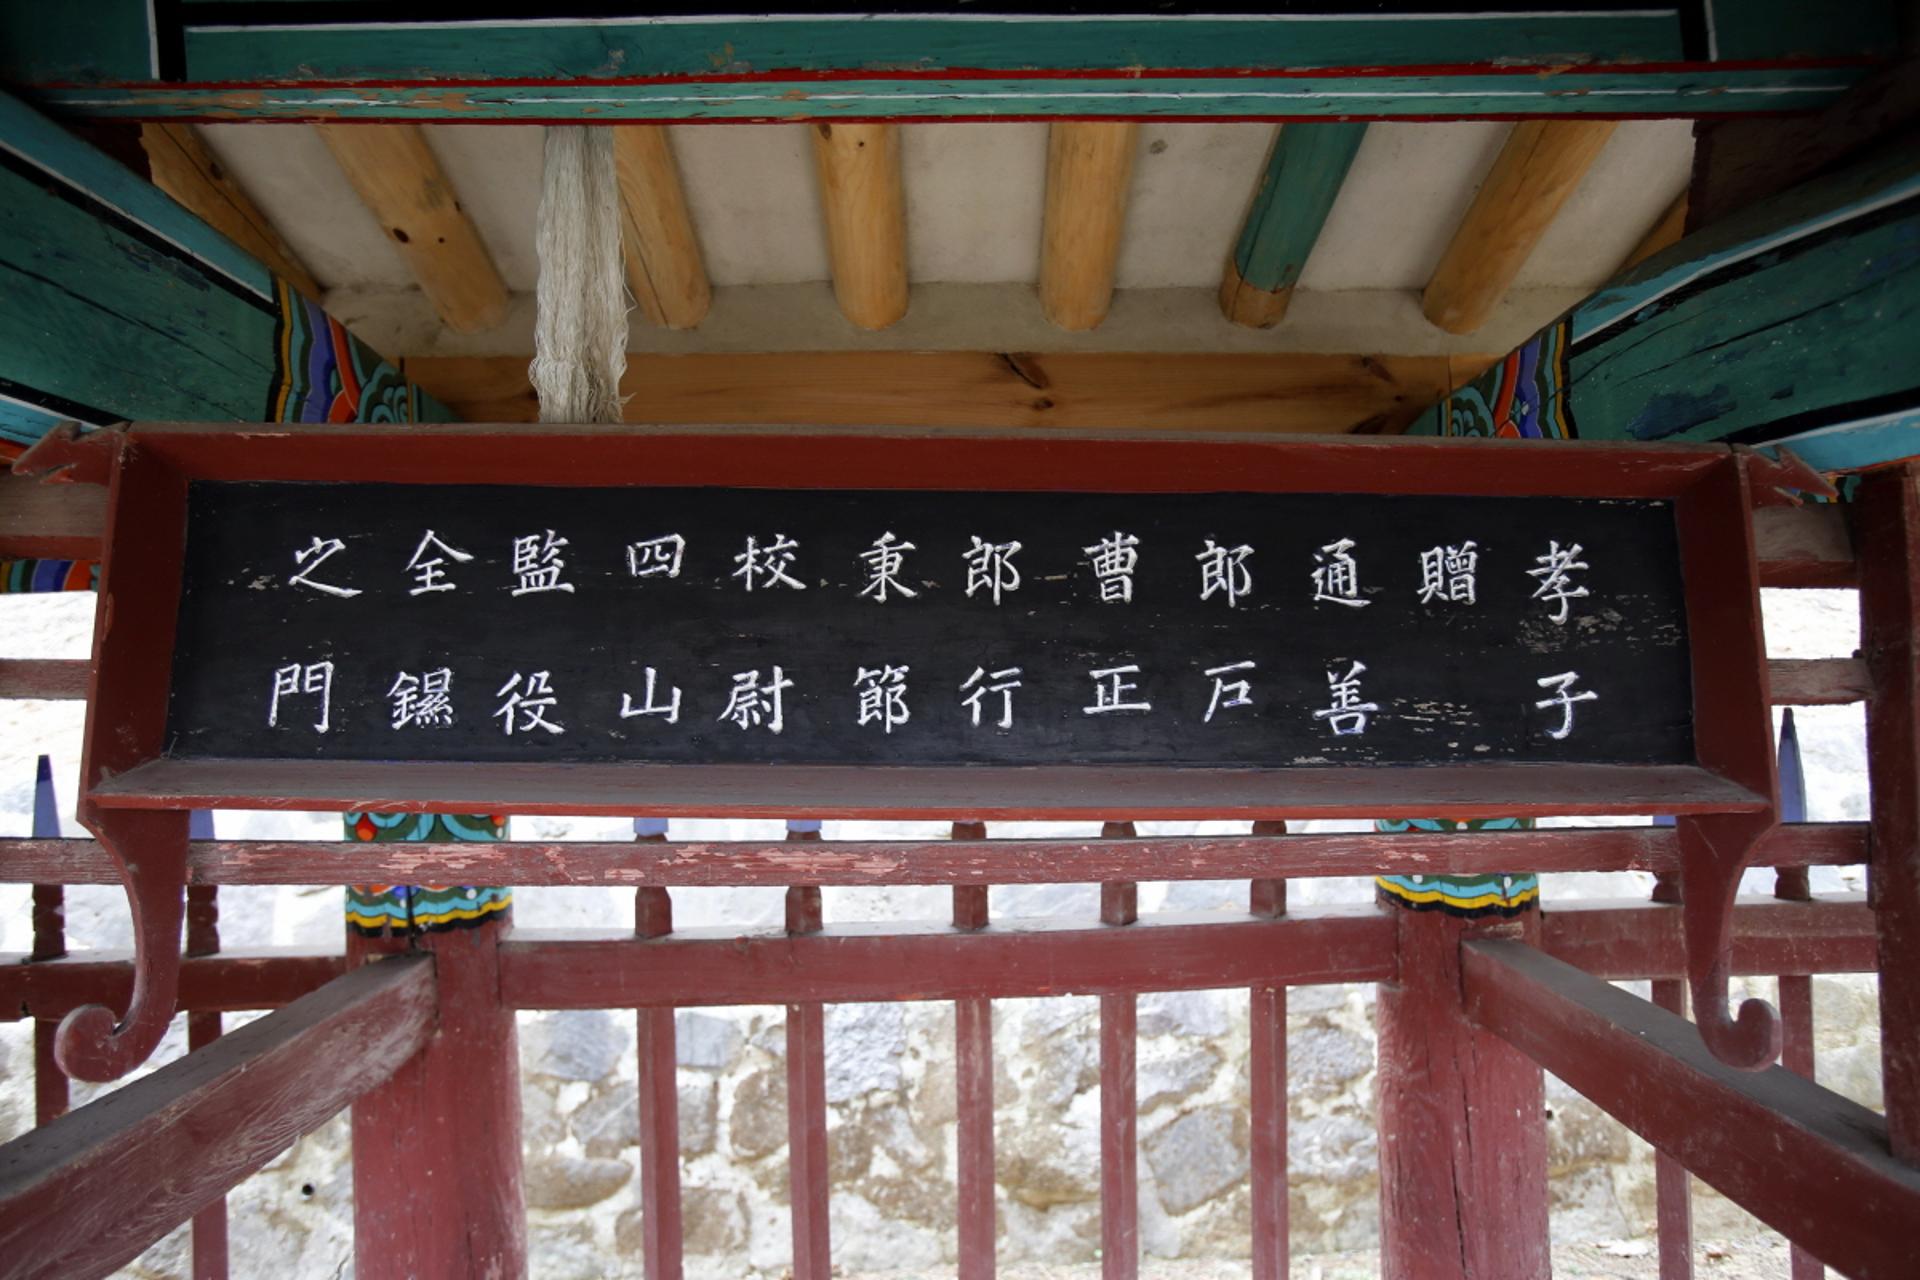 孝子
贈
通善
郎戸
曹正
郎行
秉節
校尉
四山
監役
全
之門